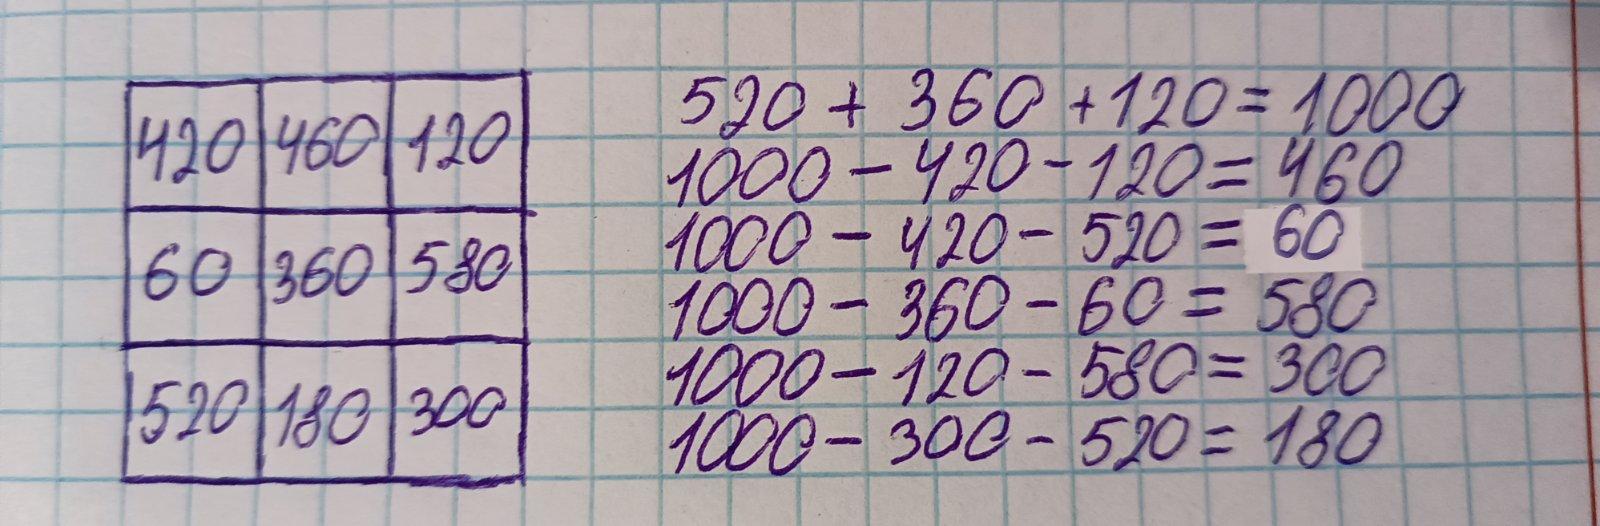 420 460 120
60 360 580
520 180 300
520 + 360 + 120 = 1000
1000 - 420 - 120 = 460
1000 - 420 - 520 = 60
1000 - 360 - 60 = 580
1000 - 120 - 580 = 300
1000 - 300 - 520 = 180